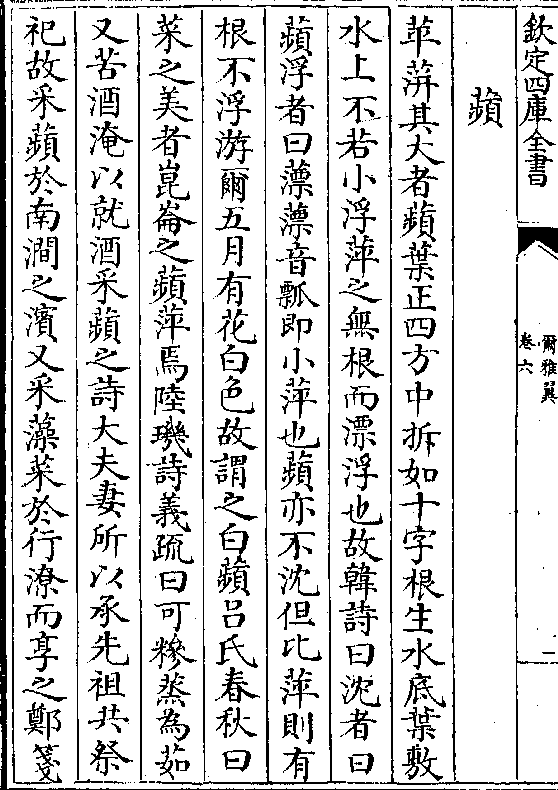 欽定四庫全書
爾雅翼
卷六
一
蘋
苹蓱其大者蘋葉正四方中拆如十字根生水底葉敷
水上不若小浮萍之無根而漂浮也故韓詩曰沈者曰
蘋浮者曰薸薸音瓢即小萍也蘋亦不沈但比萍則有
根不浮游爾五月有花白色故謂之白蘋吕氏春秋曰
菜之美者崑崙之蘋萍焉陸璣詩義疏曰可糝蒸為茹
又苦酒淹以就酒采蘋之詩大夫妻所以承先祖共祭
祀故采蘋於南澗之濱又采藻菜於行潦而享之鄭箋